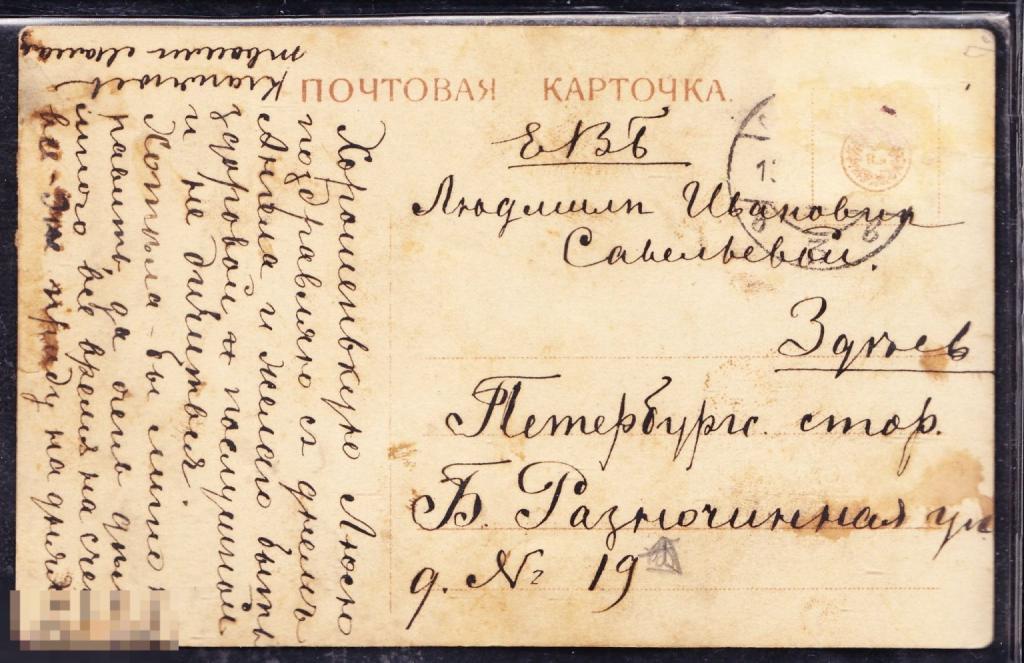 ПОЧТОВАЯ КАРТОЧКА.
ЕВБ
Людмилѣ Ивановнѣ
Савельевой.
Здѣсь
Петербургс. стор.
Б. Разночинная ул
д. № 19
Хорошенькую Люсю
поздравляю съ днемъ
Ангела и желаю быть
здоровой и послушной
и не
Хотѣла-бы лично
равить да очень
много все время на
все-же приду на дняхъ